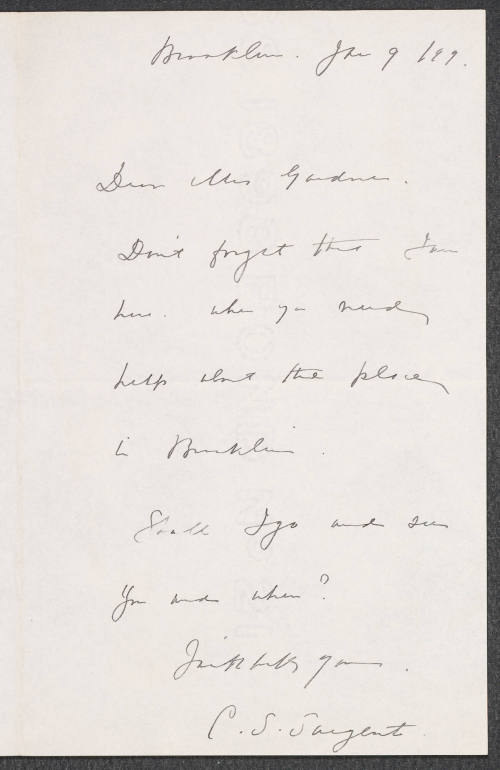 Brookline. Jan 9 /99.
Dear Mrs Gardner.
Don't forget that I am
here. when you need
help about the place
in Brookline.
Shall I go and see
you and when?
Faithfully yours.
C. S. Sargent.